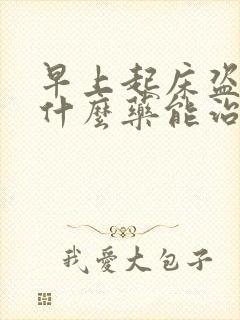 早上起床盗
什麼藥能治
我愛大包子